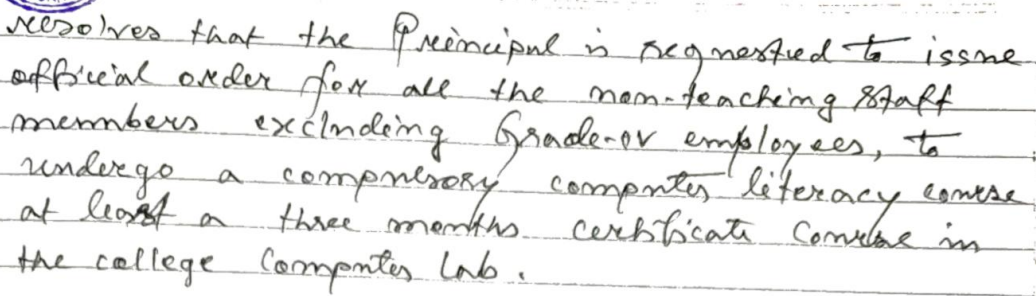 resolves that the Principal is requested to issue
official order for all the non-teaching staff
members excluding Grade-IV employees, to
undergo a compulsory computer literacy course
at least a three months certificate course in
the college Computer Lab.